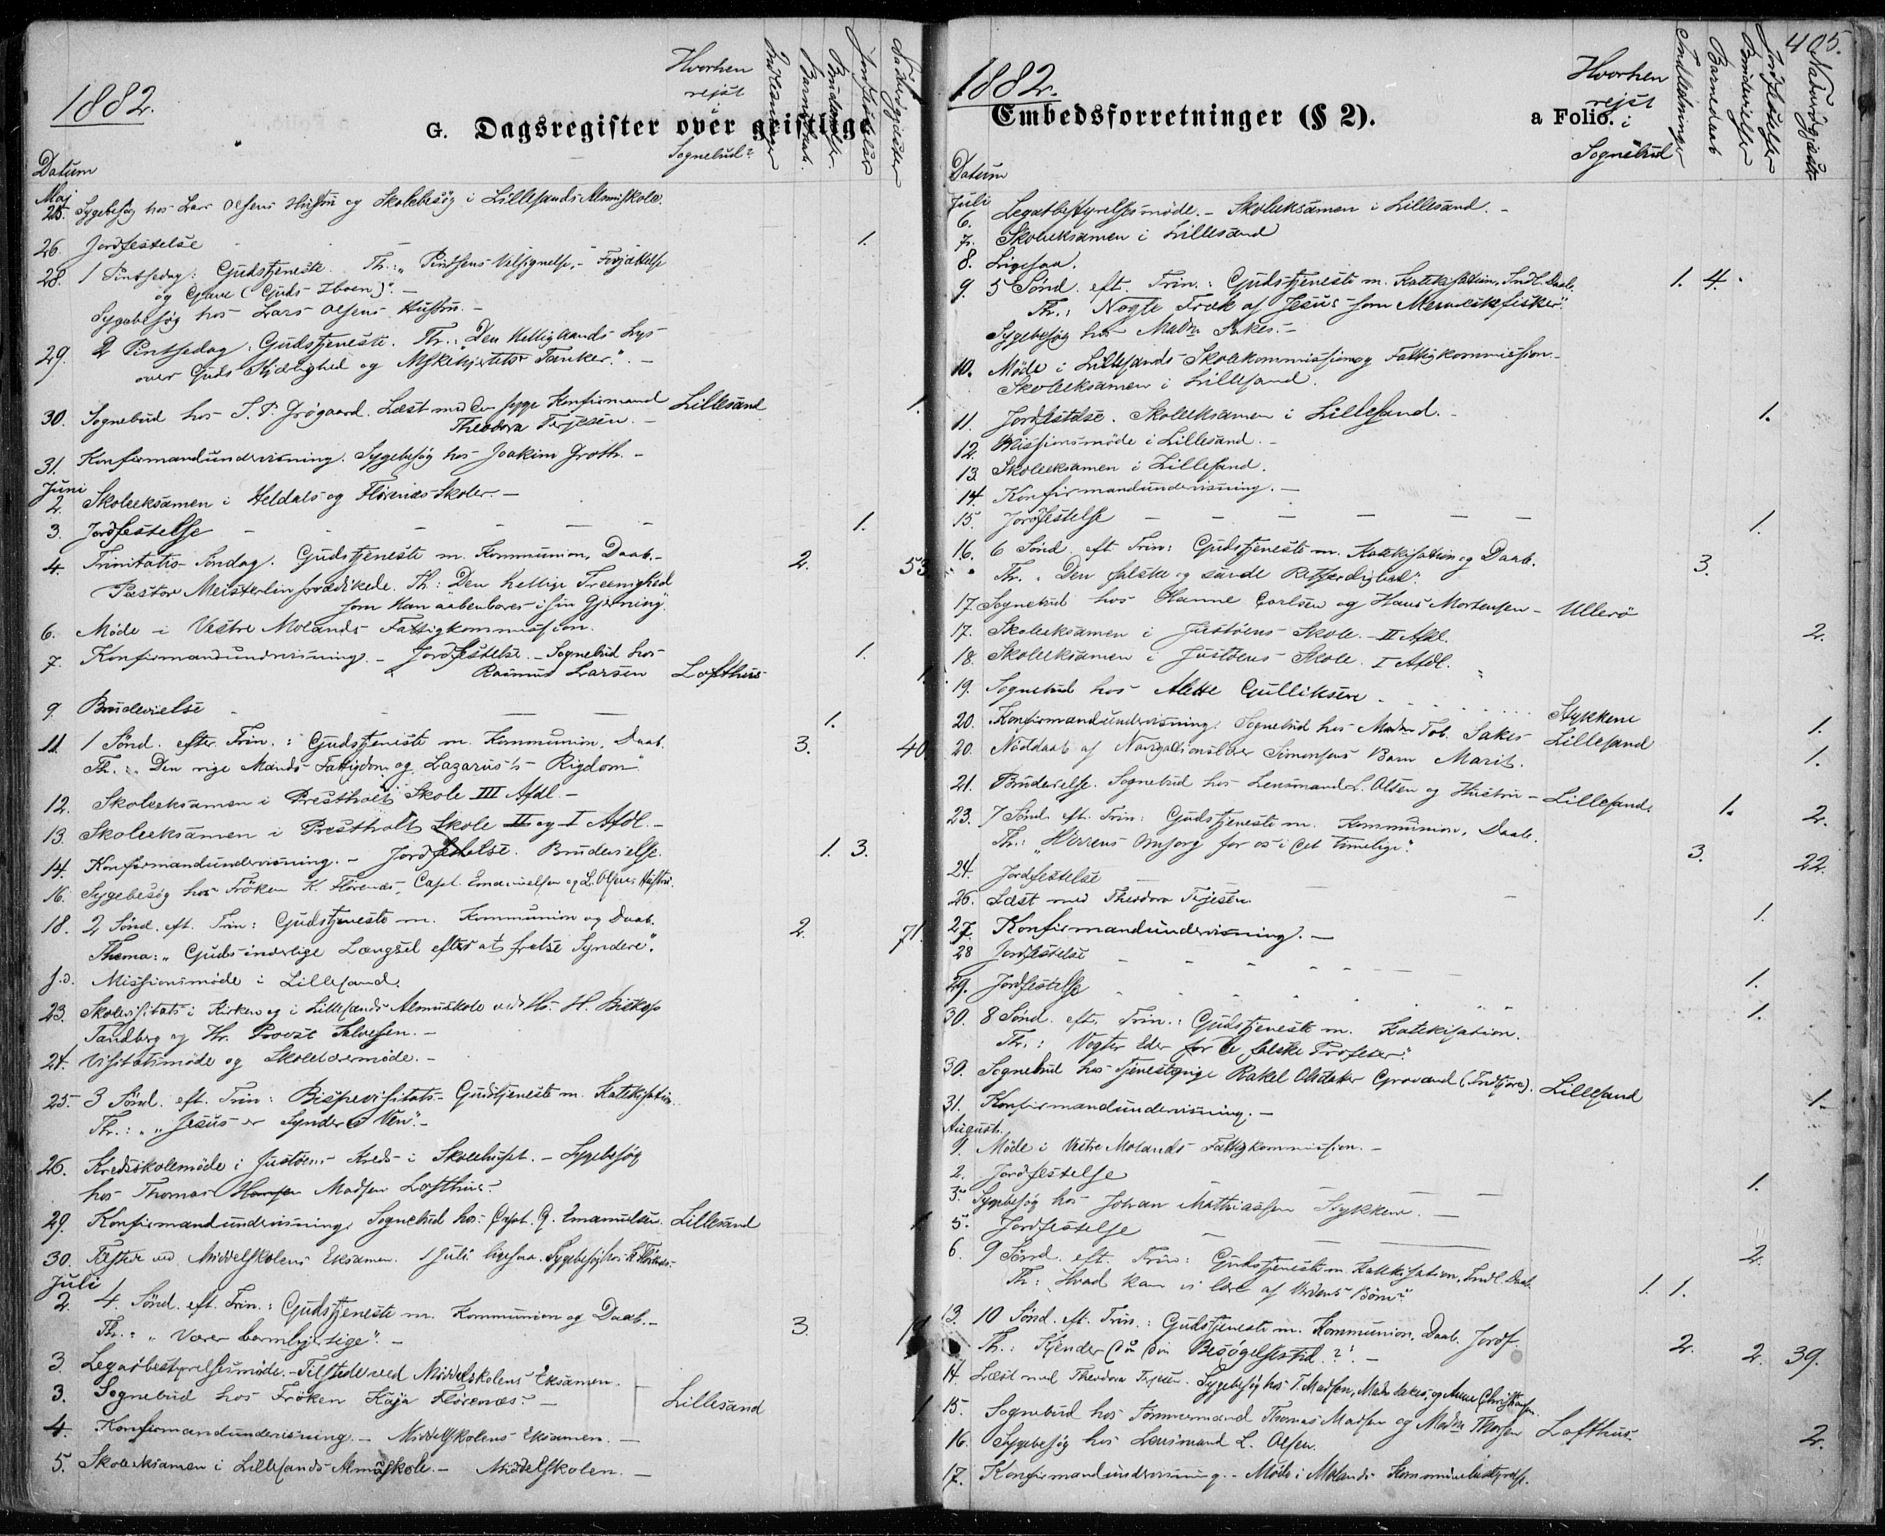 1882.
G. Dagsregister over geistlige
Hvorhen
rejst
i
Sognebud?
Indledninger
Barnedaab.
Brudevielser.
Jordfæstelser
Nadvergjæster
Datum
Maj
25. Sygebesøg hos Lars Olsens Hustru og Skolebesøg i Lillesands Almuskole.
26. Jordfestelse 1.
28. 1 Pintsedag: Gudstjeneste. Th.: "Pindsens Velsignelse, Forjættelse
og Gave (Guds Iboen)". -
Sygebesøg hos Lars Olsens Hustru. -
29. 2 Pintsedag: Gudstjeneste. Th.: "Den Helligaands Lys
over Guds Kjærlighed og Tanker". -
30. Sognebud hos Grøgaard. Læst med den syge Konfirmand Lillesand 1.
Theodora Terjesen. -
31. Konfirmandundervisning. Sygebesøg hos Joakim Groth. -
Juni
2. Skoleeksamen i Heldals og Florenæs Skoler. -
3. Jordfestelse - - - - - - 1.
4. Trinitatis Søndag. Gudstjeneste m. Kommunion, Daab. - 2. 53.
Pastor Meisterlin prædikede. Th: "Den hellige Treenighed
som Han aabenbares i sin Gjerning".
6. Møde i Vestre Molands Fattigkommission.
7. Konfirmandundervisning. - Jordfestelse. - Sognebud hos 1.
Rasmus Larsen Lofthus 1.
9. Brudevielse 1.
11. 1 Sønd. efter Trin.: Gudstjeneste m. Kommunion, Daab. 3. 40.
Th.: "Den rige Mands Fattigdom og Lazarus's Rigdom"
12. Skoleeksamen i Prestholt Skole III Afdl. -
13. Skoleeksamen i Prestholt Skole II og I Afdl. -
14. Konfirmandundervisning. - Jordfestelse. Brudevielse. 1. 3.
16. Sygebesøg hos Frøken K. Florenæs, Capt. Emanuelsen og L. Olsens Hustru.
18. 2 Sønd. eft. Trin: Gudstjeneste m. Kommunion og Daab. 2. 71.
Thema: "Guds inderlige Længsel efter at frelse Syndere".
s.d. Missionsmøde i Lillesand.
23. Skolevisitats i Kirken og i Lillesands Almuskole ved Hr. H. Biskop
Tandberg og Hr. Provst Salvesen. -
24. Visitatsmøde og Skolelærermøde. -
25. 3 Sønd. eft. Trin: Bispevisitats-Gudstjeneste m. Katekisation.
Th.: "Jesus er Synderes Ven". -
26. Kredsskolemøde i Justøens Kreds i Skolehuset. - Sygebesøg
hos Thomas Madsen Lofthus.
29. Konfirmandundervisning. Sognebud hos Capt. G. Emanuelsen. Lillesand 1
30. Tilstede ved Middelskolens Eksamen. 1 Juli ligesaa. Sygebesøg hos K. Florenæs.
Juli
2. 4. Sønd. eft. Trin.: Gudstjeneste m. Kommunion og Daab. - 3.
Th.: "Værer barmhjertige". -
3. Legatbestyrelsesmøde. - Tilstede ved Middelskolens Eksamen.
3. Sognebud hos Frøken Kaja Florenæs. - Lillesand 1
4. Konfirmandundervisning. - Middelskolens Eksamen. -
5. Skoleeksamen i Lillesands Almuskole. - Middelskolen. -
405.
1882.
Embedsforretninger (§ 2).
a Folio.
Hvorhen
rejst
i
Sognebud
Indledninger
Barnedaab
Brudevielser
Jordfæstelser
Nadvergjæster
Datum
Juli
6. Legatbestyrelsesmøde. - Skoleeksamen i Lillesand. -
7. Skoleeksamen i Lillesand
8. Ligesaa.
9. 5 Sønd. eft. Trin.: Gudstjeneste m. Katekisation, Indl. Daab. 1. 4.
Th.: Nogle Træk af Jesus som Menneskefisker".
Sygebesøg hos Madm Sakes. -
10. Møde i Lillesands Skolekommission og Fattigkommission. -
Skoleeksamen i Lillesand.
11. Jordfestelse. Skoleeksamen i Lillesand. - 1.
12. Missionsmøde i Lillesand. -
13 Skoleeksamen i Lillesand.
14. Konfirmandundervisning. -
15 Jordfestelse - - - - - - 1.
16. 6 Sønd. eft. Trin: Gudstjeneste m. Katekisation og Daab. 3.
Th. "Den falske og sande Retfærdighed".
17. Sognebud hos Hanne Carlsen og Hans Mortensen - Ullerø 2.
17. Skoleeksamen i Justøens Skole. - II Afdl.
18. Skoleeksamen i Justøens Skole. I Afdl.
19. Sognebud hos Alette Gulliksen Stykkene 1.
20. Konfirmandundervisning. Sognebud hos Madm Tob. Sakes Lillesand 1.
20. Nøddaab af Navigationslærer Simonsens Barn Marit.
21. Brudevielse. Sognebud hos Lensmand L. Olsen og Hustru - Lillesand. 1. 2.
23. 7 Sønd. eft. Trin: Gudstjeneste m. Kommunion, Daab. 3. 22.
Th.: "Herrens Omsorg for os i det timelige".
24. Jordfestelse 1.
26. Læst med Theodora Terjesen
27. Konfirmandundervisning. -
28 Jordfestelse 1.
29. Jordfestelse 1.
30. 8 Sønd. eft. Trin.: Gudstjeneste m. Katekisation.
Th.: Vogter Eder for de falske Profeter".
30. Sognebud hos Tjenestepige Rakel (Indfjore). Lillesand 1.
31. Konfirmandundervisning. -
August.
1. Møde i Vestre Molands Fattigkommission. -
2. Jordfestelse 1.
3. Sygebesøg hos Johan Mathiassen Stykken. -
5. Jordfestelse 2.
6. 9 Sønd. eft. Trin: Gudstjeneste m. Katekisation, Indl. Daab. 1. 1.
Th: Hvad kan vi lære af Verdens Børn".
13. 10 Sønd. eft. Trin.: Gudstjeneste m. Kommunion, Daab. Jordf. 2. 2. 39.
Th.: Kjender du din Besøgelsestid?". -
14. Læst med Theodora Terjesen. Sygebesøg hos T. Madsen, Madm Sakes og Anne Christiansen.
15. Sognebud hos Tømmermand Thomas Madsen og Madm Thorsen Lofthus. 2.
16. Sygebesøg hos Lensmand L. Olsen.
17. Konfirmandundervisning. - Møde i Molands Kommunebestyrelse.